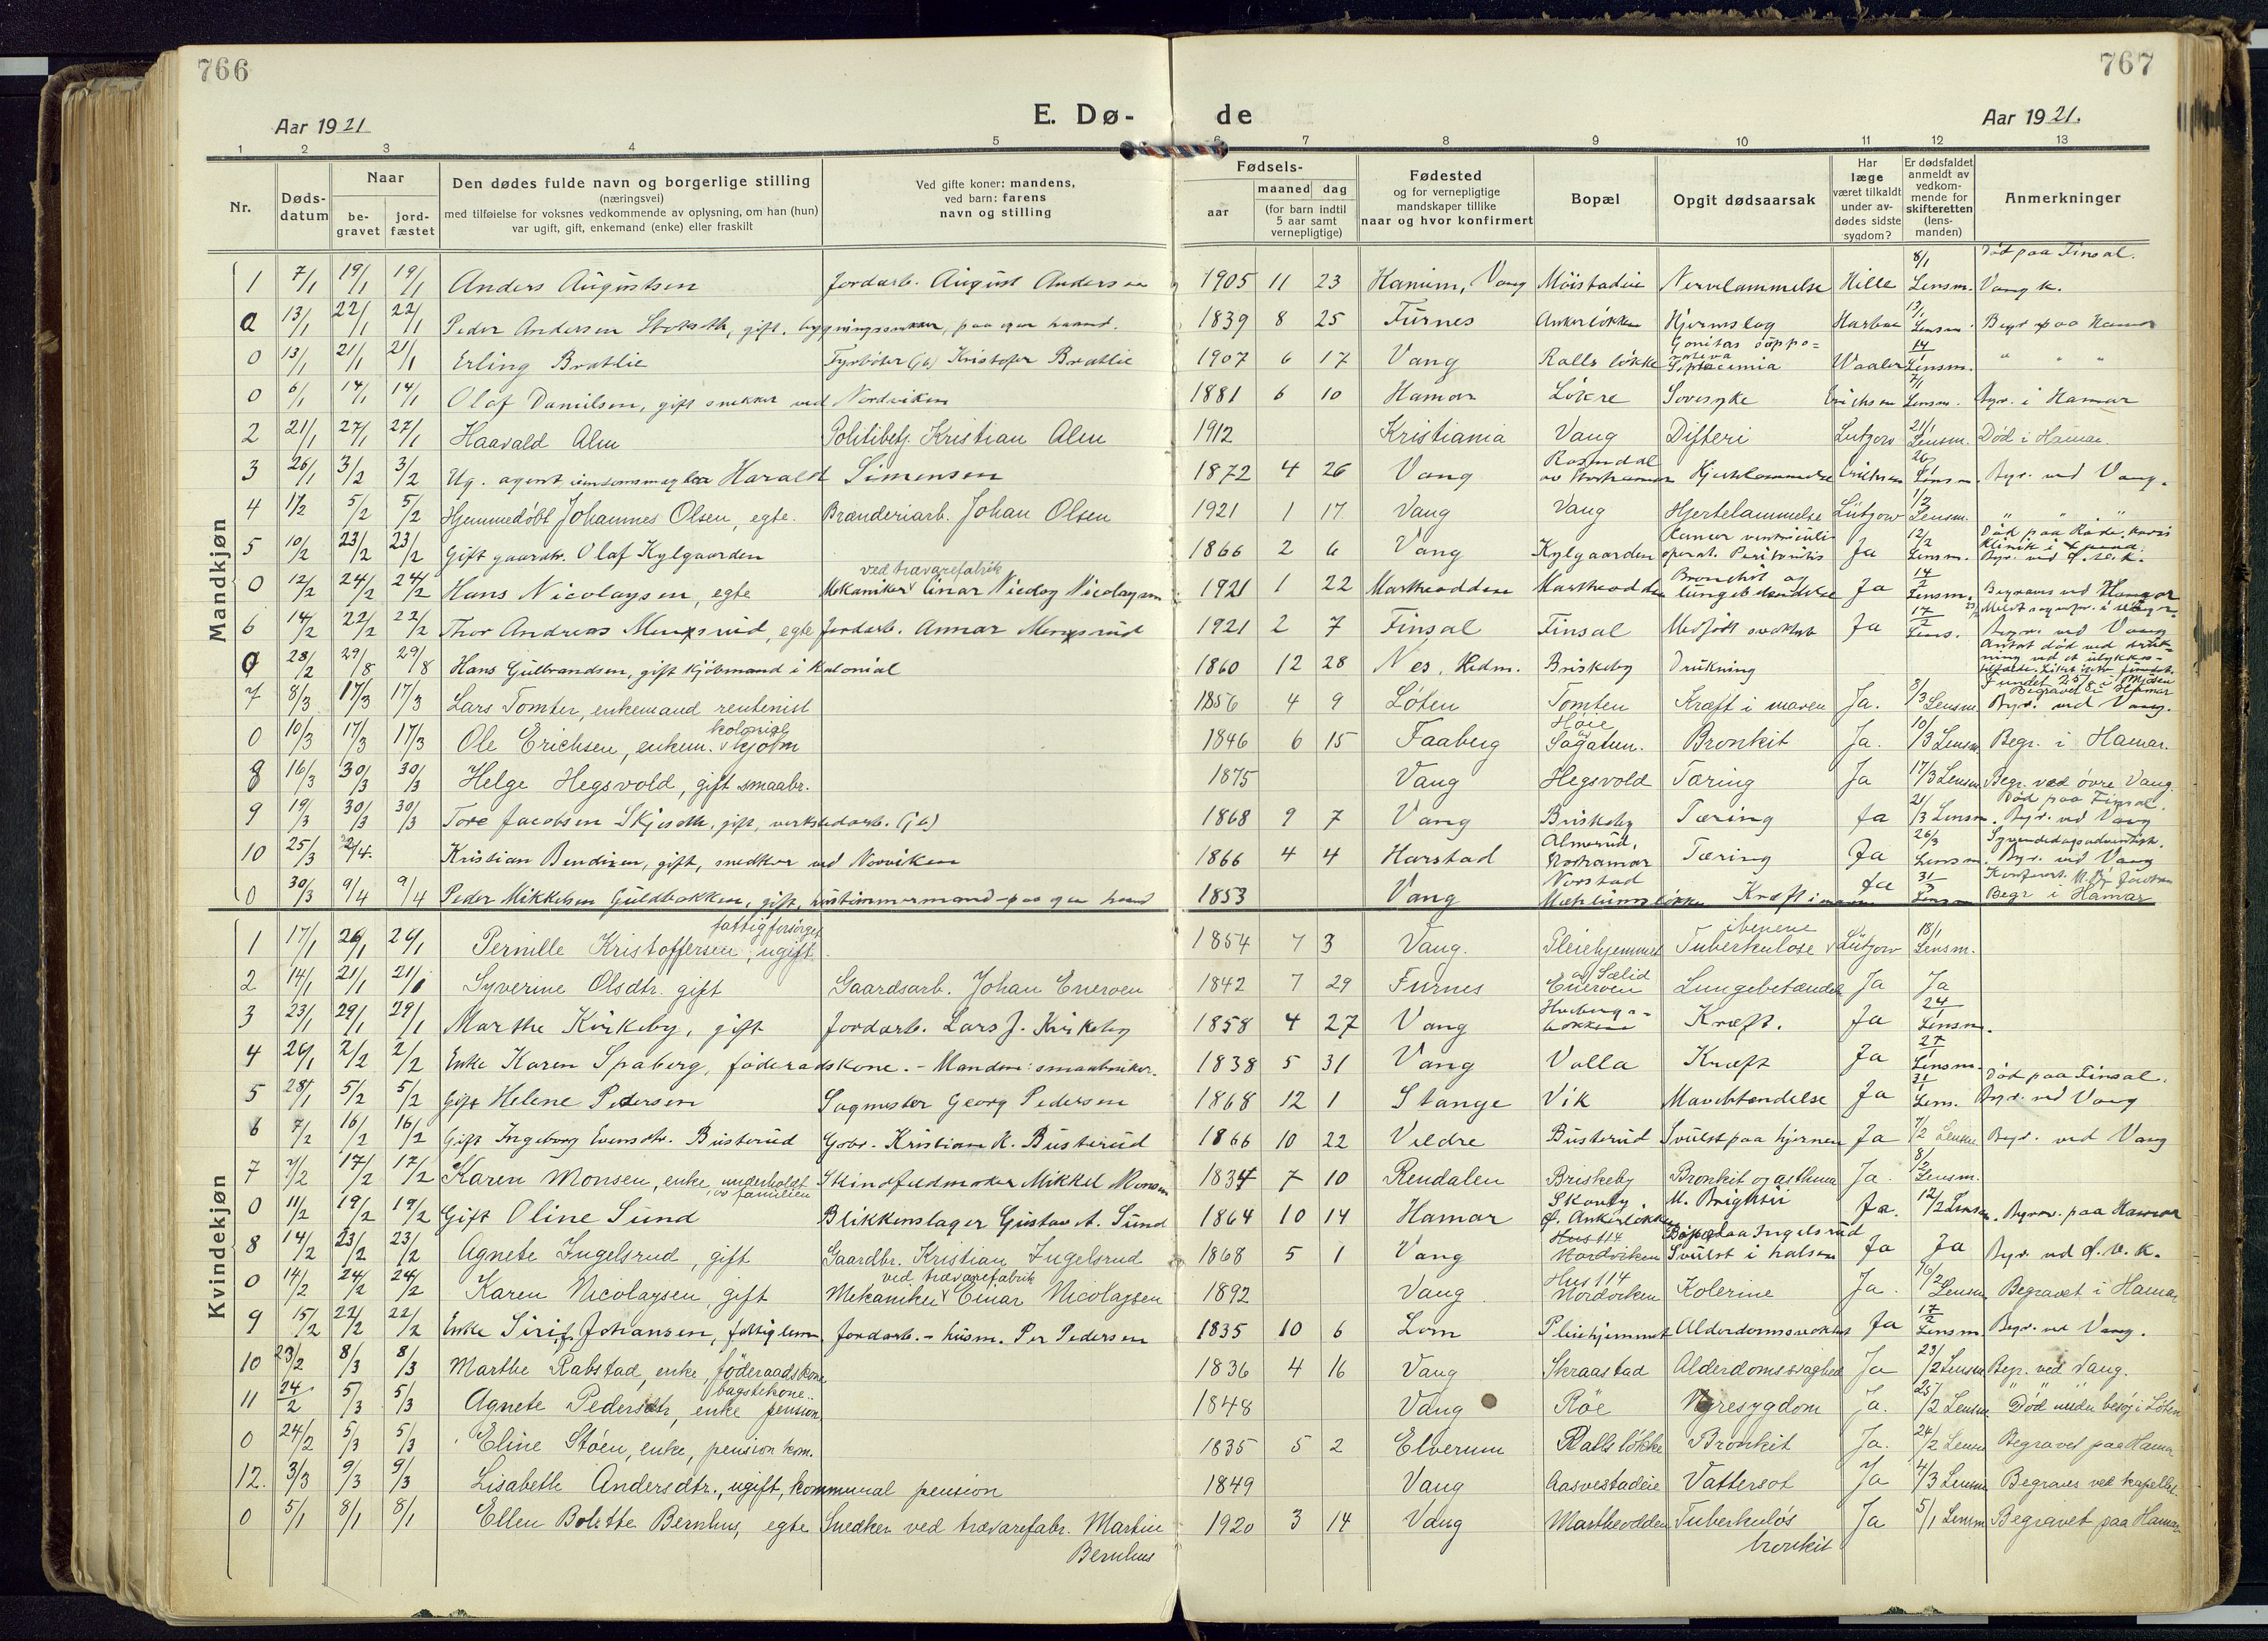 766
767
Aar 1921
E. Dø-
de
Aar 1921.
1 2 3 4 5 6 7 8 9 10 11 12 13
Nr.
Døds-datum
Naar
be-gravet
jord-fæstet
Den dødes fulde navn og borgerlige stilling
(næringsvei)
med tilføielse for voksnes vedkommende av oplysning, om han (hun)
var ugift, gift, enkemand (enke) eller fraskilt
Ved gifte koner: mandens,
ved barn: farens
navn og stilling
Fødsels-
aar
maaned dag
(for barn indtil
5 aar samt
vernepligtige)
Fødested
og for vernepligtige
mandskaper tillike
naar og hvor konfirmert
Bopæl
Opgit dødsaarsak
Har
læge
været tilkaldt
under av-
dødes sidste
sygdom?
Er dødsfaldet
anmeldt av
vedkom-
mende for
skifteretten
(lens-
manden)
Anmerkninger
Mandkjøn
1 7/1 19/1 19/1 Anders Augustsen Jordarb. August Andersen 1905 11 23 Hanum, Vang Møistadeie Nervelammelse Hille 8/1 Lensm. Død paa Finsal. Vang k.
0 13/1 22/1 22/1 Peder Andersen gift, paa egen haand. 1839 8 25 Furnes Ankerløkken Hjerneslag 13/1 Lensm. Begr. paa Hamar
0 13/1 21/1 21/1 Erling Bratlie Fyrbøter (jb) Kristofer Bratlie 1907 6 17 Vang Ralls løkke Waaler 14/1 Lensm. " " "
0 6/1 14/1 14/1 Olaf Danielsen, gift snekker ved Nordviken 1881 6 10 Hamar Sovesyke Erichsen 7/1 Lensm. Begr. i Hamar
2 21/1 27/1 27/1 Haavald Alm Politibetj. Kristian Alm 1912 Kristiania Vang Difteri Lutzow 21/1 Lensm. Død i Hamar
3 26/1 3/2 3/2 Ug. agent Harald Simensen 1872 4 26 Vang Rosendal Hjertelammelse Erichsen 26 Lensm. Begr. ved Vang.
4 1/2 5/2 5/2 Hjemmedøbt Johannes Olsen, egte. Brænderiarb. Johan Olsen 1921 1 17 Vang Vang Hjertelammelse Lützow 1/2 Lensm. " "
5 10/2 23/2 23/2 Gift gaardbr. Olaf Kylgaarden 1866 2 6 Vang Kylgaarden operat. Peritonitis Ja 12/2 Lensm.
0 12/2 24/2 24/2 Hans Nicolaysen, egte Mekaniker v ved trævarefabrik Einar Nicolaysen 1921 1 22 Marthaodden Marthaodden Bronchit og lungebetændelse Ja 14/2 Lensm. Begraves ved Hamar
6 14/2 22/2 22/2 Thor Andreas egte Jordarb. 1921 2 7 Finsal Finsal Medfødt svakhet Ja 17/2 Lens. Begr. ved Vang
0 28/2 29/8 29/8 Hans Gulbrandsen, gift kjøbmand i kolonial 1860 12 28 Nes, Hedm. Briskeby Drukning Antat død ved drukning ved et ulykkes-tilfælde. Fundet 25/8 i Mjøsen Begravet i Hamar
7 8/3 17/3 17/3 Lars Tomter, enkemand rentenist 1856 4 9 Løten Tomten Kræft i maven Ja. 8/3 Lensm. Begr. ved Vang.
0 10/3 17/3 17/3 Ole Erichsen, enkem. v kolonial kjøbm 1846 6 15 Faaberg Høie Sagatun. Bronkit Ja. 10/3 Lensm. Begr. i Hamar.
8 16/3 30/3 30/3 Helge Hegsvold, gift smaabr. 1875 Vang Hegsvold Tæring Ja 17/3 Lensm Begr. ved øvre Vang
9 19/3 30/3 30/3 Tore Jacobsen gift, verkstedarb. (jb) 1868 9 7 Vang Briskeby Tæring Ja 21/3 Lensm. Død paa Finsal. Begr. ved Vang
10 25/3 2/4. Kristian Bendixen, gift, snedker ved Norviken 1866 4 4 Harstad Almerud, Storhamar Tæring Ja 26/3 Lensm. Syvendedagsadventist. Begr. ved Vang
0 30/3 9/4 9/4 Peder Mikkelsen Guldbakken, gift, hustimmermand paa egen haand 1853 Vang Norstad Kræft i maven Ja 31 Lensm Begr i Hamar
Kvindekjøn
1 17/1 26/1 26/1 Pernille Kristoffersen, ugift. fattigforsørget 1854 7 3 Vang. Pleiehjemmet Tuberkulose v i benene Lützow 18/1 Lensm.
2 14/1 21/1 21/1 Syverine Olsdtr. gift Gaardsarb. Johan Eneroen 1842 7 29 Furnes Eneroen av Sælid Lungebetændels Ja Ja
3 23/1 29/1 29/1 Marthe Kirkeby, gift Jordarb. Lars J. Kirkeby 1858 4 27 Vang Kræft. Ja 24 Lensm.
4 26/1 2/2 2/2 Enke Karen Spaberg, føderaadskone. - Manden: smaabruker. 1838 5 31 Vang Volla Kræft Ja 27/1 Lensm.
5 28/1 5/2 5/2 Gift Helene Pedersen Sagmester Georg Pedersen 1868 12 1 Stange Vik Mavebetændelse Ja 31 Lens. Død paa Finsal. Begr. ved Vang
6 7/2 16/2 16/2 Gift Ingeborg Evensdtr. Busterud Gbr. Kristian K. Busterud 1866 10 22 Veldre Busterud Svulst paa hjernen Ja 7/2 Lensm Begr. ved Vang
7 7/2 17/2 17/2 Karen Monsen, enke, underholdt av familien Skindfeldmaker Mikkel Monsen 1834 7 10 Rendalen Briskeby Bronkit og asthma Ja. 8/2 Lensm.
0 11/2 19/2 19/2 Gift Oline Sund Blikkenslager Gustav A. Sund 1864 10 14 Hamar Skauby, M. Brightii Ja. 12/2 Lensm. Begrav. paa Hamar
8 14/2 23/2 23/2 Agnete Ingelsrud, gift Gaardbr. Kristian Ingelsrud 1868 5 1 Vang Hus 114 Nordviken Bopæl paa Ingelsrud Svulst i halsen Ja Ja Begr. ved ø. v. k.
0 14/2 24/2 24/2 Karen Nicolaysen, gift Mekaniker v ved trævarefabrik Einar Nicolaysen 1892 Vang. Hus 114 Nordviken Kolerine Ja. 16/2 Lensm Begravet i Hamar
9 15/2 22/2 22/2 Enke Siri J. Johansen, fattiglem, Jordarb. - husm. Per Pedersen 1835 10 6 Lom Pleiehjemmet Alderdomssvakhet Ja 17/2 Lensm. Begr. ved Vang.
10 23/2 8/3 8/3 Marthe Rabstad, enke, føderaadskone 1836 4 16 Vang Skraastad Alderdomssvaghed Ja 23/2 Lensm Begr. ved Vang.
11 24/2 5/3 5/3 Agnete Pedersdtr, enke bagstekone.. pension 1848 Vang Røe Nyresygdom Ja. 25/2 Lensm Død under besøg i Løten
0 24/2 5/3 5/3 Eline Støen, enke, pension kom. 1835 5 2 Elverum Ralls løkke Bronkit Ja. 24/2 Lensm Begravet paa Hamar
12. 3/3 9/3 9/3 Lisabeth Andersdtr., ugift, kommunal pension 1849 Vang Aasvestadeie Vattersot Ja 4/3 Lensm Begraves ved kapellet.
0 5/1 8/1 8/1 Ellen Bolette Bernhus, egte Snedker ved trævarefabr. Martin Bernhus 1920 3 14 Vang Marthaodden Tuberkuløs bronkit Ja 5/1 Lensm Begravet paa Hamar